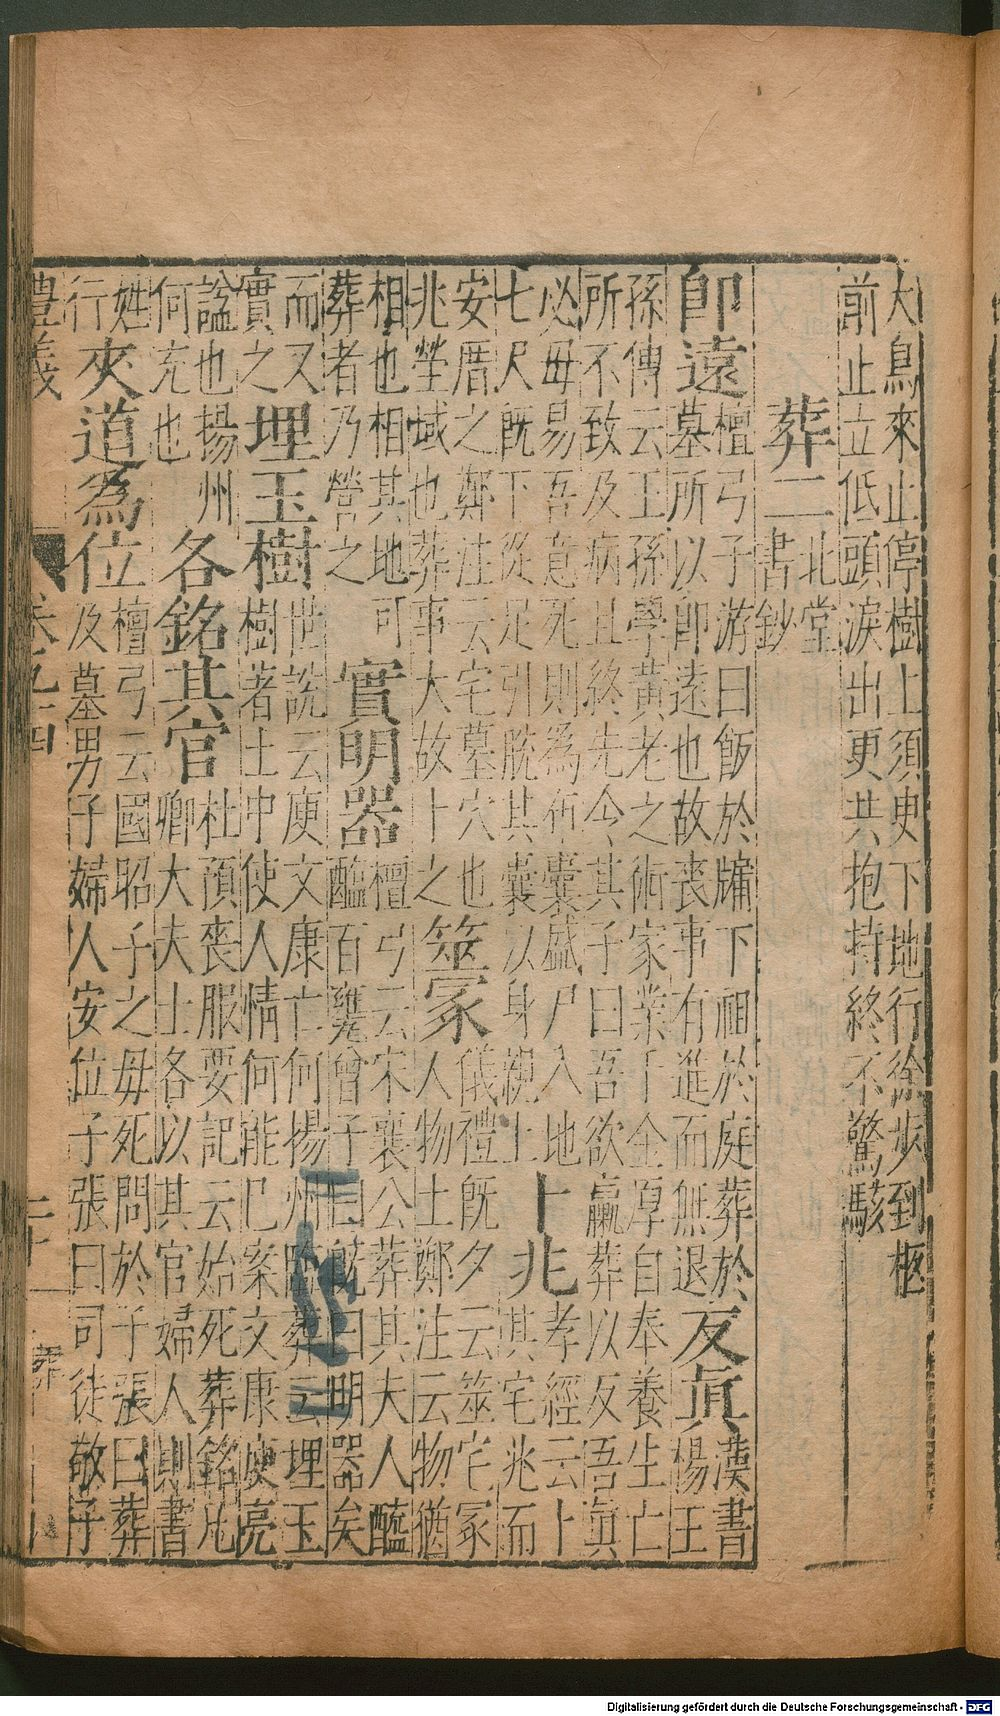 大鳥來止停樹上須臾下地行徐步到柩
前止立低頭淚出更共抱持終不驚駭
葬二 北堂書鈔
即遠 檀弓子游曰飯於牖下祖於庭葬於墓所以即遠也故喪事有進而無退 反眞 漢書楊王
孫傳云王孫學黃老之術家業千金厚自奉養生亡
所不致及病且終先令其子曰吾欲臝葬以反吾眞
必毋易吾意死則為布囊盛尸入地
七尺旣下從足引脫其囊以身親土 卜兆 孝經云卜其宅兆而
安厝之鄭注云宅墓穴也
兆塋域也葬事大故卜之 筮冢 儀禮旣夕云筮宅冢人物土鄭注云物猶
相也相其地可
葬者乃營之 實明器 檀弓云宋襄公葬其夫人醯醢百甕曾子曰旣曰明器矣
而又
實之 埋玉樹 世說云庾文康亡何揚州臨葬云埋玉樹著土中使人情何能已案文康庾亮
謚也揚州
何充也 各銘其官 杜預喪服要記云始死葬銘凡卿大夫士各以其官婦人則書
姓
行 夾道為位 檀弓云國昭子之母死問於子張曰葬及墓男子婦人安位子張曰司徒敬子
豊義 卷九四 二十一 葬